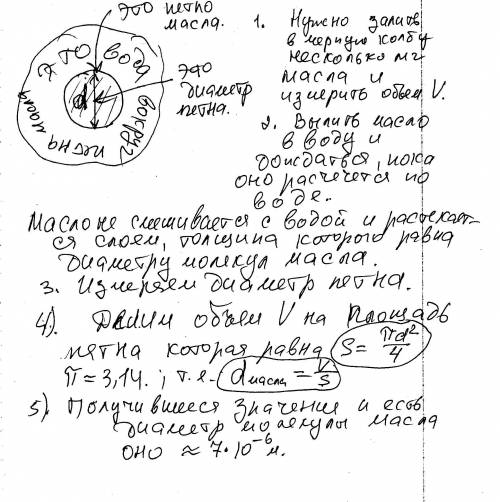 это пятно
масла.
это вода вокруг пятна масла
d
это
диаметр
пятна.
1. Нужно залить
в мерную колбу
несколько мг
масла и
измерить объем V.
2. Вылить масло
в воду и
дождаться, пока
оно растечется по
воде.
Масло не смешивается с водой и растекает-
ся слоем, толщина которого равна
диаметру молекул масла.
3. Измеряем диаметр пятна.
4). Делим объем V на площадь
пятна которая равна S = πd²/4
π = 3,14. ; т.е. d масла = V/S
5). Получившееся значение и есть
диаметр молекулы масла
оно ≈ 7·10⁻⁶ м.